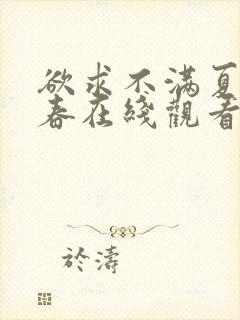 欲求不滿夏
春在綫觀看
於濤